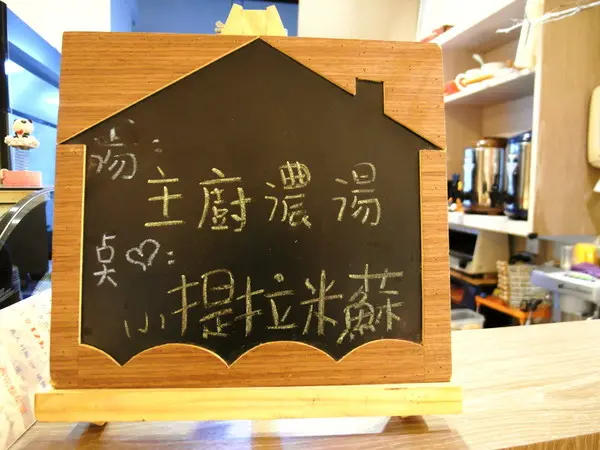 湯：
主廚濃湯
点♡：
小提拉米蘇